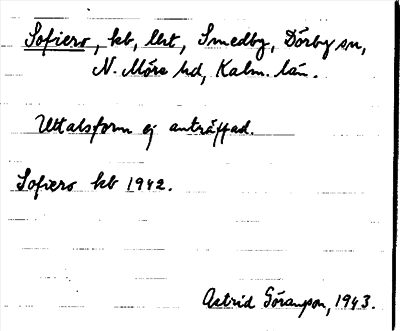 Sofiero, kb, lht, Smedby, Dörby sn,
N. Möre hd, Kalm. län.
Uttalsform ej anträffad.
Sofiero kb 1942.
Astrid Göransson, 1943.